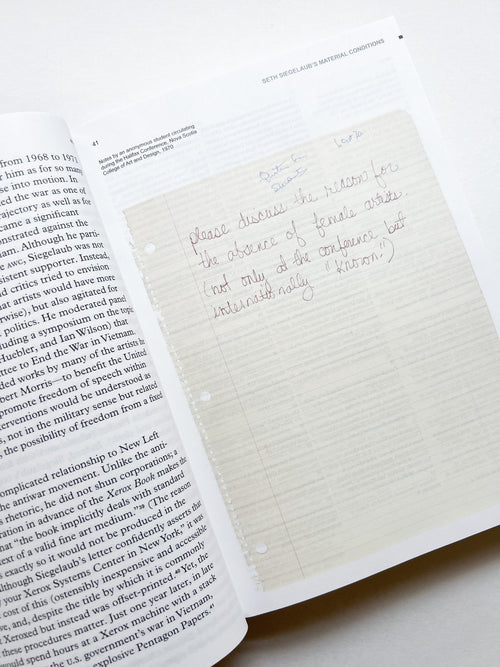 from 1968 to 1971
him as for so many
se into motion. In
ed the war as one of
rajectory as well as for
came a significant
onstrated against the
am. Although he parti-
e AWC, Siegelaub was not
sistent supporter. Instead,
d critics tried to envision
at artists would have more
rwise), but also agitated for
politics. He moderated panel
luding a symposium on the topic
Huebler, and Ian Wilson) that
ttee to End the War in Vietnam.
ded works by many of the artists he
bert Morris—to benefit the United
promote freedom of speech within
terventions would be understood as
s, not in the military sense but related
, the possibility of freedom from a fixed
omplicated relationship to New Left
the antiwar movement. Unlike the anti-
s rhetoric, he did not shun corporations; a
ration in advance of the Xerox Book makes the
hat “the book implicitly deals with standard
text of a valid fine art medium.” (The reason
s exactly so it would not be produced in the
lthough Siegelaub's letter confidently asserts that
your Xerox Systems Center in New York,” it was
cost of this (ostensibly inexpensive and accessible
ve, and, despite the title by which it is commonly
t Xeroxed but instead was offset-printed. Yet, the
these procedures matter. Just one year later, in late
would spend hours at a Xerox machine with a stack
the U.S. government's war in Vietnam
explosive Pentagon Papers.
SETH SIEGELAUB'S MATERIAL CONDITIONS
41
Notes by an anonymous student circulating
during the Halifax Conference, Nova Scotia
College of Art and Design, 1970
please discuss the reason for
the absence of female artists.
(not only at the conference but
internationally "known.")